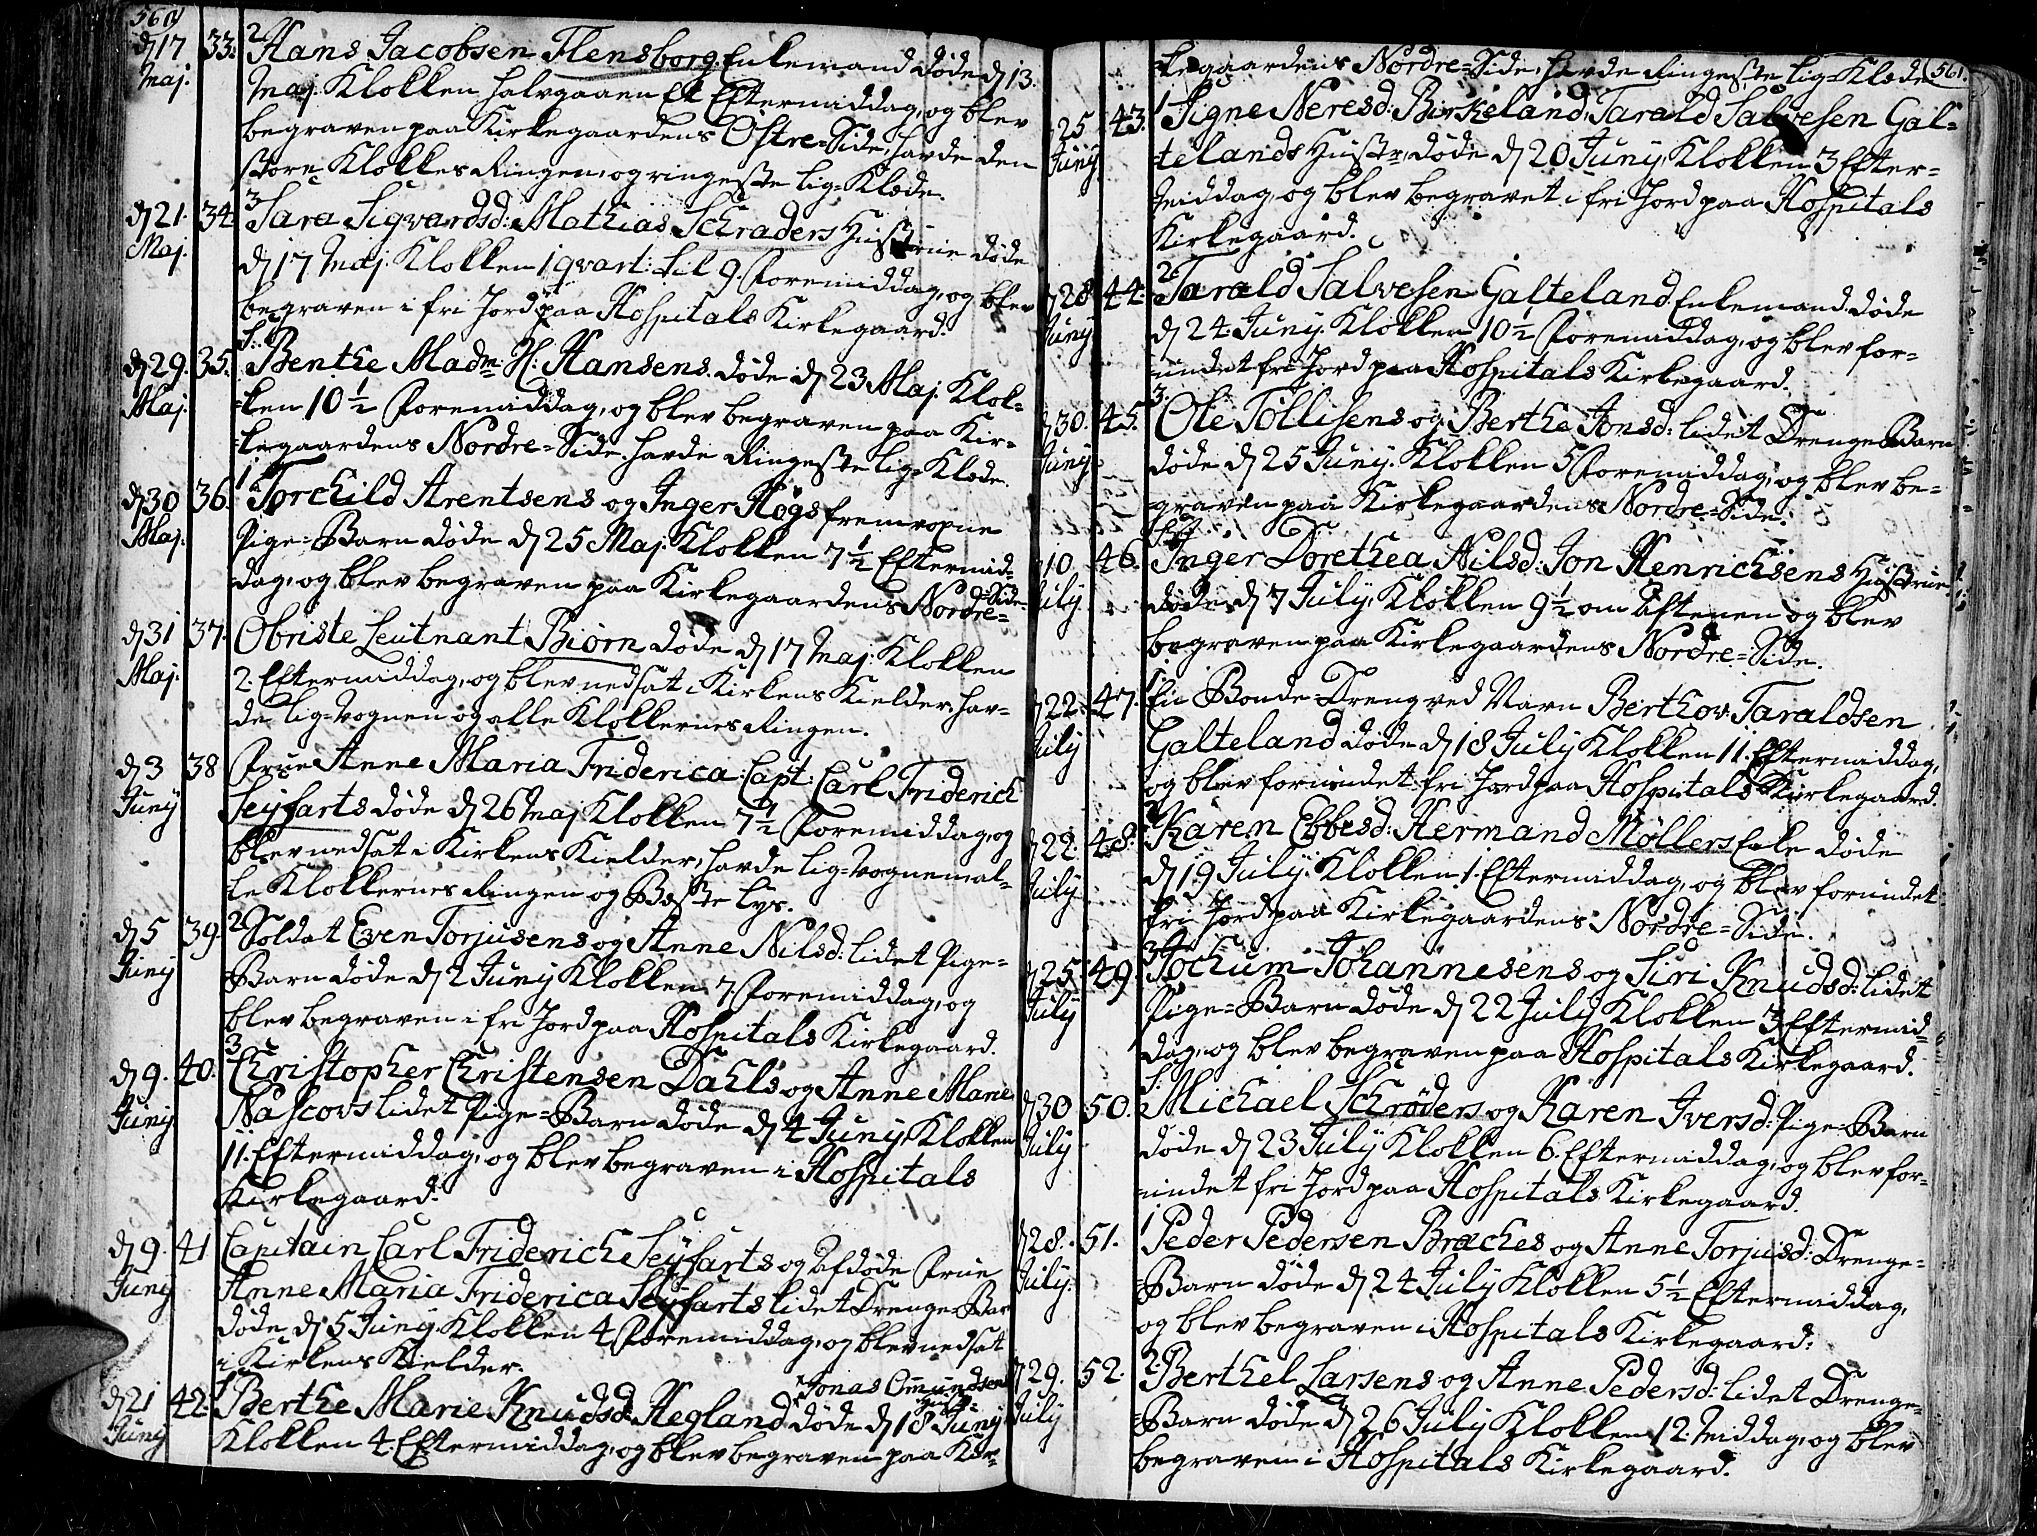 560
d 17 Maj. 33. 2 Hans Jacobsen Flensborg, Enkemand døde d 13.
Maj. Klokken halvgaaen Et Eftermiddag, og blev
begraven paa Kirkegaardens Østre=Side, havde den
store Klokkes Ringen, og ringeste Lig=Klæde.
d 21. Maj. 34. 3 Sara Sigvardsd: Mathias Schraders Hustrue døde
d 17 Maj. Klokken 1 qvart: til 9. Foremiddag, og blev
begraven i fri Jord paa Hospitals Kirkegaard.
d 29. Maj. 35. S: Benthe Madm: H: Hansens. døde d 23 Maj. Klok=
=ken 10 1/2 Foremiddag, og blev begraven paa Kir=
=kegaardens Nordre=Side. havde Ringeste Lig=Klæde.
d 30 Maj. 36. 1 Torchild Arentsens og Inger Høgs fremvoxne
Pige=Barn døde d 25 Maj. Klokken 7 1/2 Eftermid=
dag, og blev begraven paa Kirkegaardens Nordre=
Side.
d 31 Maj. 37. Obriste Leutnant Biørn døde d 17 Maj. Klokken
2. Eftermiddag, og blev nedsat i Kirkens Kielder, hav=
de Lig=Vognen og alle Klokkernes Ringen.
d 3 Juny 38 Frue Anne Maria Friderica Capt: Carl Friderich
Seyfarts døde d 26 Maj Klokken 7 1/2 Foremiddag, og
blev nedsat i Kirkens Kielder, havde Lig=Vognem al=
le Klokkernes Ringen og Beste Lys.
d 5 Juny 39. 2 Soldat Even Torjusens og Anne Nilsd: lidet Pige=
=Barn døde d 2 Juny Klokken 7 Foremiddag, og
blev begraven i fri Jord paa Hospitals Kirkegaard.
d 9. Juny 40. 3 Christopher Christensen Dahls og Anne Marie
Nascovs lidet Pige=Barn døde d 4 Juny, Klokken
11. Eftermiddag, og blev begraven i Hospitals
Kirkegaard.
d 9. Juny 41 Capitain Carl Friderich Seyfarts og Afdøde Frue
Anne Maria Friderica Seyfarts lidet Drenge=Bar
døde d 5 Juny Klokken 4 Foremiddag, og blev nedsat
i Kirkens Kielder.
Jonas Omundsens
d 21 Juny 42. 1 Berthe Marie Knudsd: Hegland døde d 18 Juny
Klokken 4. Eftermiddag, og blev begraven paa Kir=
561.
kegaardens Nordre=Side, havde Ringeste Lig=Klæde
25 Juny 43. 1 Signe Neresd: Birkeland, Tarald Salvesen Gal=
=telands Hustr: døde d 20 Juny, Klokken 3 Efter=
Middag, og blev begravet i fri Jord paa Hospitals
Kirkegaard.
d 28 Juny 44. 2. Tarald Salvesen Galteland Enkemand. døde
d 24. Juny. Klokken 10 1/2 Foremiddag, og blev for=
undet fri Jord paa Hospitals Kirkegaard.
d 30. Juny. 45. 3. Ole Tollisens og Berthe Jonsd: lidet Drenge Barn
døde d 25 Juny. Klokken 5 Foremiddag, og blev be=
graven paa Kirkegaardens Nordre=Side.
10 July 46. Inger Dorethea Nilsd: Jon Henrichsens Hustrue
døde d 7 July, Klokken 9 1/2 om Aftenen og blev
begraven paa Kirkegaardens Nordre=Side.
d 22. July 47. 1 En Bonde=Dreng ved Navn Berthov Taraldsen
Galteland døde d 18 July Klokken 11. Eftermiddag,
og blev forundet fri Jord paa Hospitals Kirkegaard.
d 22. July 48. 2 Karen Ebbesd: Hermand Møllers Enke døde
d 19 July. Klokken 1. Eftermiddag, og blev forundet
fri Jord paa Kirkegaardens Nordre=Side.
d 25. July 49. 3 Jochum Johannesens og Siri Knudsd: lidet
Pige=Barn døde d 22 July Klokken 3 Eftermid=
dag, og blev begraven paa Hospitals Kirkegaard.
d 30 July 50. S: Michael Schrøders og Karen Iversd: Pige=Barn
døde d 23 July Klokken 6. Eftermiddag, og blev for=
=undet fri Jord paa Hospitals Kirkegaard.
d 28. July. 51. 1 Peder Pedersen Braches og Anne Torjusd: Drenge=
=Barn døde d 24 July Klokken 5 1/2 Eftermiddag,
og blev begraven i Hospitals Kirkegaard:
d 29. July 52. 2. Berthel Larsens og Anne Pedersd: lidet Drenge=
=Barn døde d 26 July Klokken 12. Middag, og blev
begraven i Hospitals Kirkegaard.